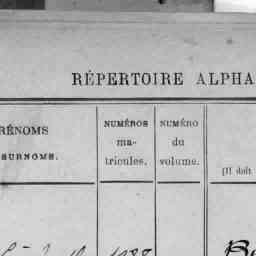 RÉPERTOIRE ALPHA
RÉNOMS
SURNOMS.
NUMÉROS
ma-
tricules.
NUMÉRO
du
volume.
(Il doit